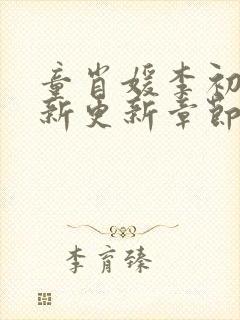 童肖媛李初
新更新章節
李育臻